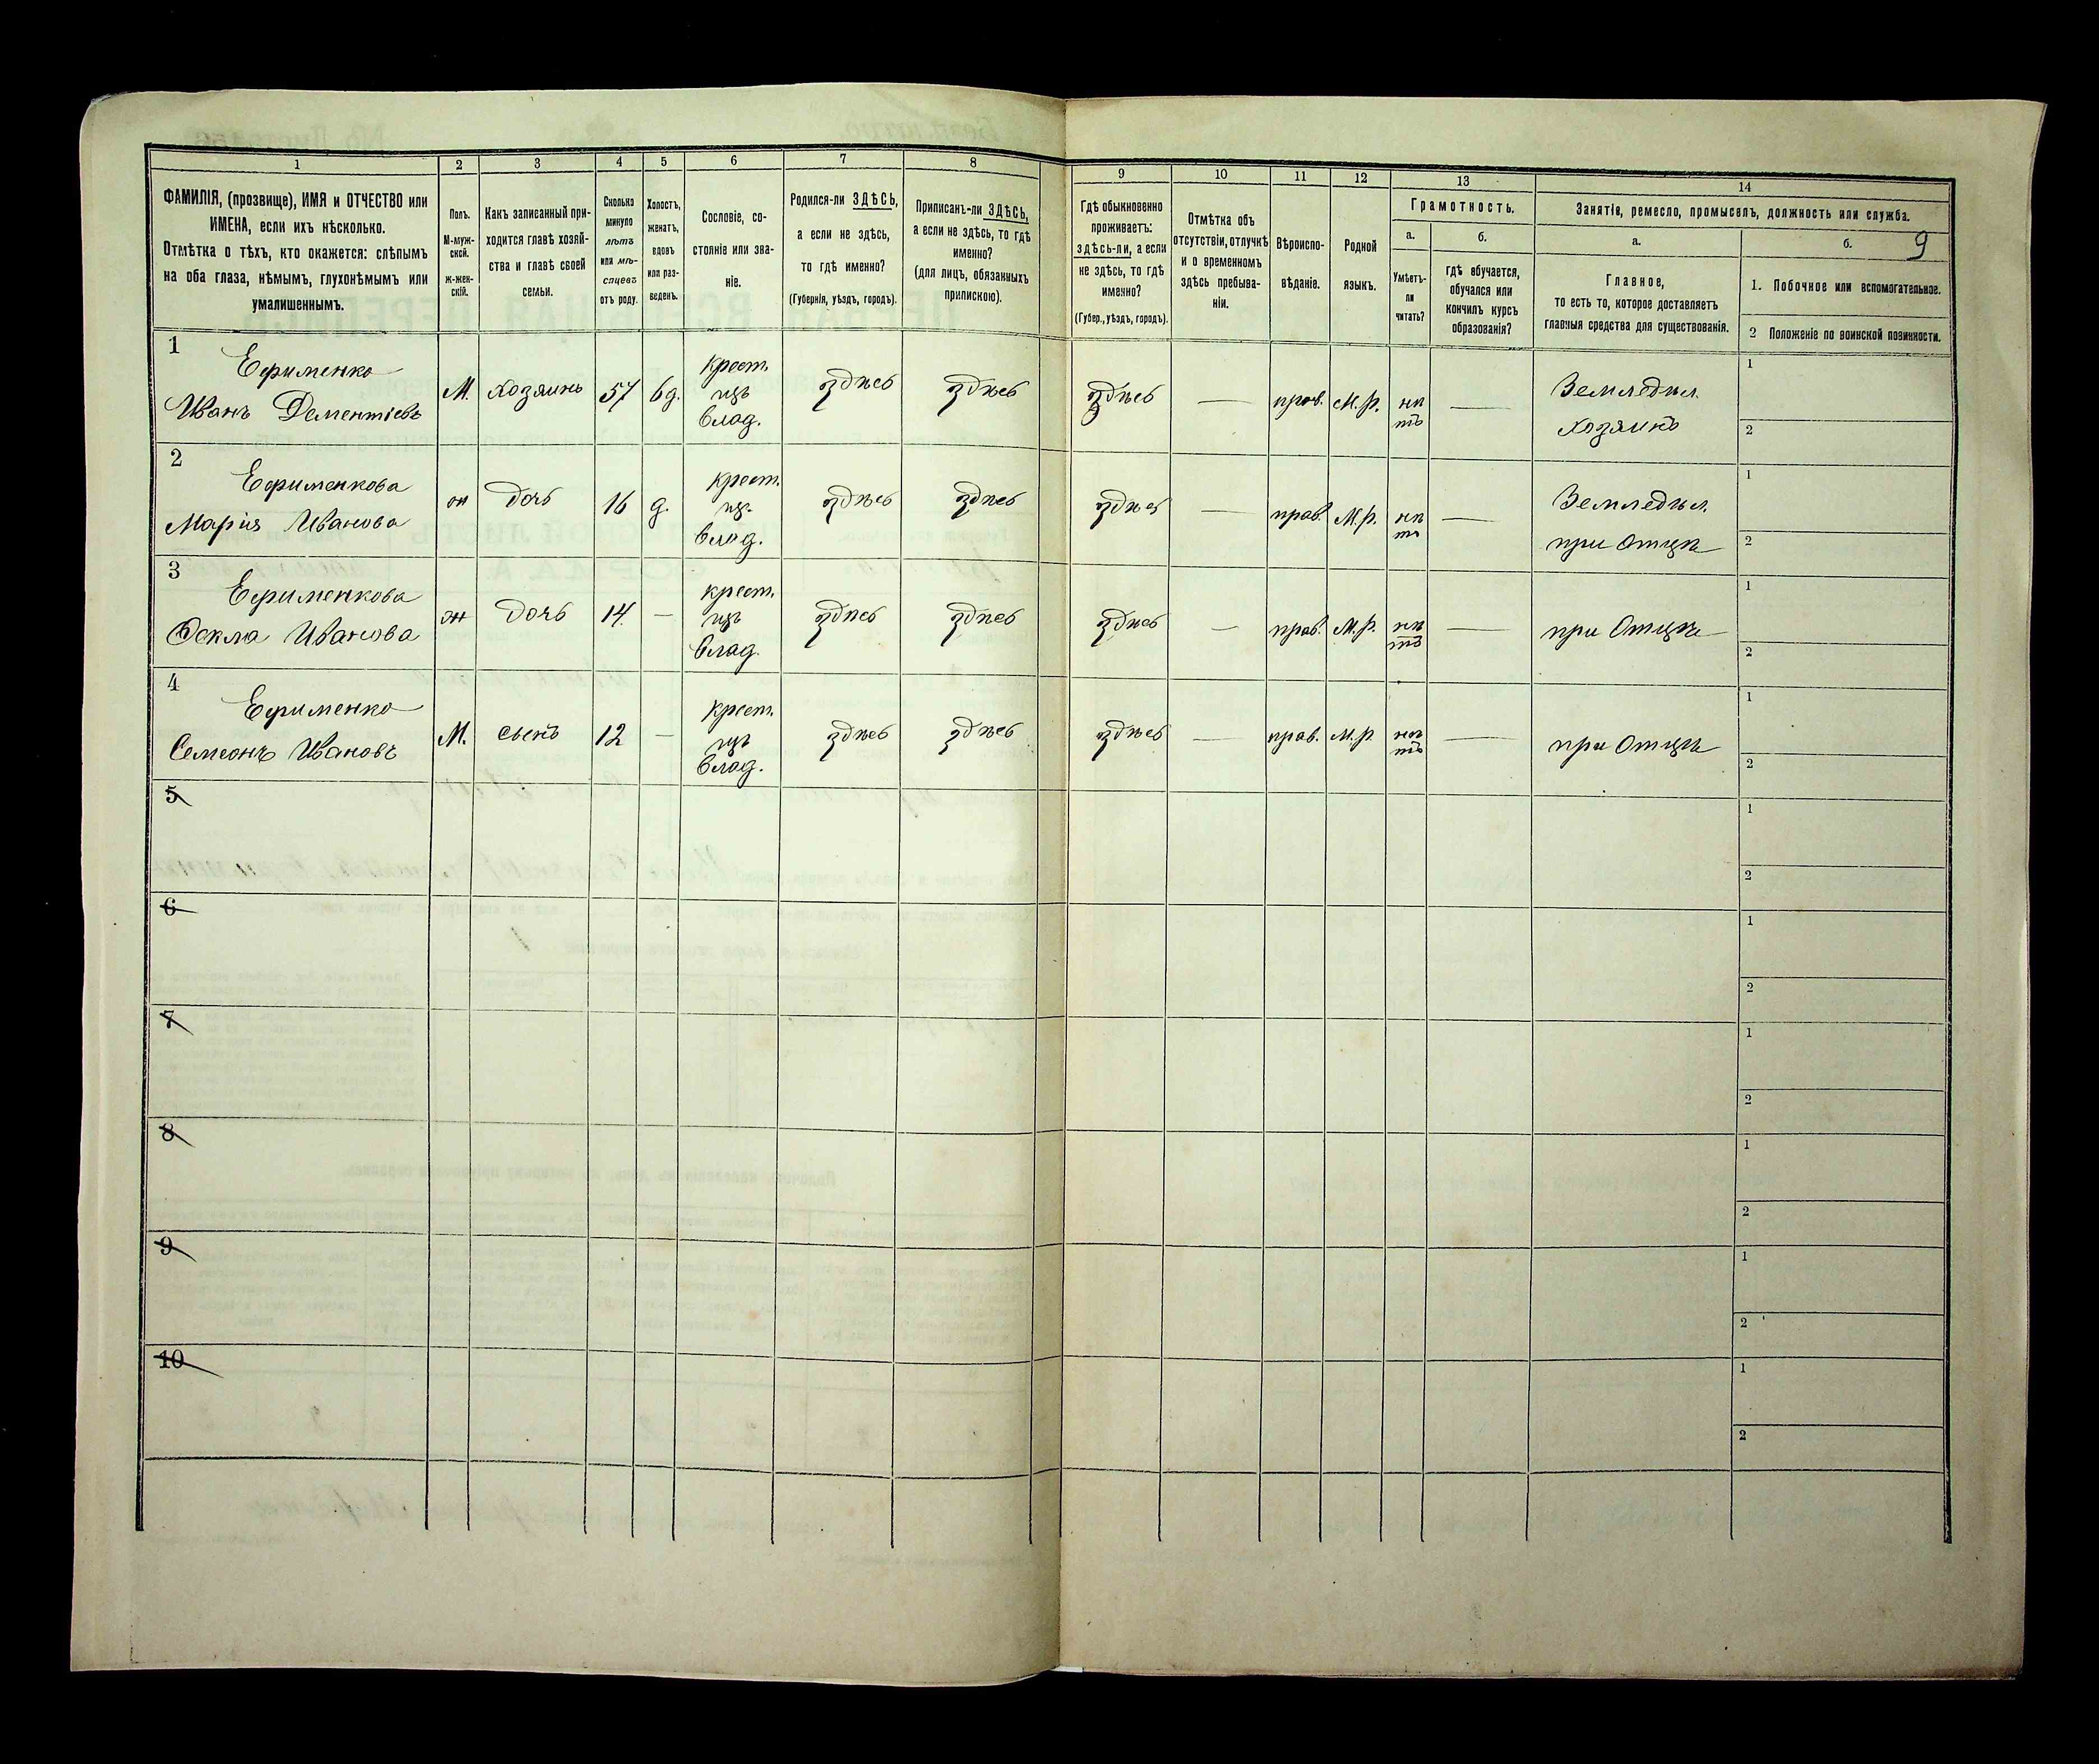 1
2
3
4
5
6
7
8
9
10
11
12
13
14
ФАМИЛІЯ, (прозвище), ИМЯ и ОТЧЕСТВО или
ИМЕНА, если ихъ нѣсколько.
Отмѣтка о тѣхъ, кто окажется: слѣпымъ
на оба глаза, нѣмымъ, глухонѣмымъ или
умалишеннымъ.
Полъ.
М-муж-
ской.
Ж-жен-
скій.
Какъ записанный при-
ходится главѣ хозяй-
ства и главѣ своей
семьи.
Сколько
минуло
лѣтъ
или мѣ-
сяцевъ
отъ роду.
Холостъ,
женатъ,
вдовъ
или раз-
веденъ.
Сословіе, со-
стояніе или зва-
ніе.
Родился-ли ЗДѢСЬ,
а если не здѣсь,
то гдѣ именно?
(Губернія, уѣздъ, городъ).
Приписанъ-ли ЗДѢСЬ,
а если не здѣсь, то гдѣ
именно?
(для лицъ, обязанныхъ
припискою).
Гдѣ обыкновенно
проживаетъ:
здѣсь-ли, а если
не здѣсь, то гдѣ
именно?
(Губер., уѣздъ, городъ).
Отмѣтка объ
отсутствіи, отлучкѣ
и о временномъ
здѣсь пребыва-
ніи.
Вѣроиспо-
вѣданіе.
Родной
языкъ.
Грамотность.
а.
Умѣетъ-
ли
читать?
б.
гдѣ обучается,
обучался или
кончилъ курсъ
образованія?
Занятіе, ремесло, промыселъ, должность или служба.
9
а.
Главное,
то есть то, которое доставляетъ
главныя средства для существованія.
б.
1. Побочное или вспомогательное.
2 Положеніе по воинской повинности.
1
Ефименко
Иванъ Дементіевъ
М. хозяинъ 57 вд.
крест.
изъ
влад.
здѣсь здѣсь здѣсь — прав. М.р. нѣ
тъ —
Земледѣл.
хозяинъ
1
2
2
Ефименкова
Марія Иванова
ж дочь 16 д.
крест.
из.
влад.
здѣсь здѣсь здѣсь — прав. М.р. нѣ
тъ —
Земледѣл.
при Отцѣ
1
2
3
Ефименкова
Фекла Иванова
ж дочь 14. —
крест.
изъ
влад.
здѣсь здѣсь здѣсь — прав. М.р. нѣ
тъ —
при Отцѣ
1
2
4
Ефименко
Семеонъ Ивановъ
М. сынъ 12 —
крест.
изъ
влад.
здѣсь здѣсь здѣсь — прав. М.р. нѣ
тъ —
при Отцѣ
1
2
5
1
2
6
1
2
7
1
2
8
1
2
9
1
2
10
1
2